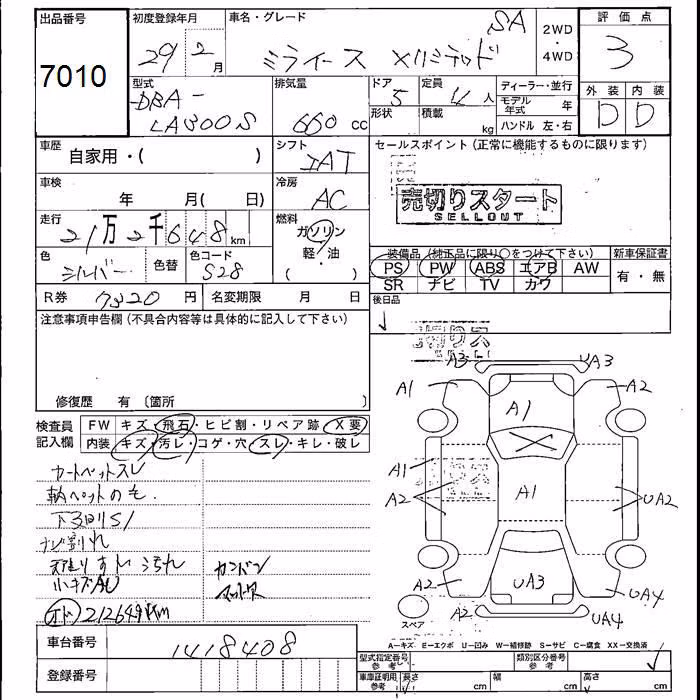 出品番号
7010
初度登録年月
29年 2月
車名・グレード
ミライース XリミテッドSA
2WD・4WD
評価点
3
外装 内装
D D
型式
DBA-
LA300S
排気量
660 cc
ドア 5
形状
定員 4人
積載 kg
ディーラー・並行
モデル年式 年
ハンドル 左・右
車歴
自家用・( )
シフト
IAT
セールスポイント(正常に機能するものに限ります)
売切りスタート
SELLOUT
車検
年 月( 日)
冷房
AC
走行
21万2千648km
燃料
ガソリン
軽・油
( )
色
シルバー
色替
色コード
S28
装備品(純正品に限り○をつけて下さい)
新車保証書
PS PW ABS エアB AW
SR ナビ TV カワ
有・無
R券 7320円
名変期限 月 日
後日品
注意事項申告欄(不具合内容等は具体的に記入して下さい)
修復歴 有〔箇所 〕
検査員記入欄
FW キズ・飛石・ヒビ割・リペア跡・X要
内装 キズ・汚レ・コゲ・穴・スレ・キレ・破レ
カートペットスレ
下3回りS1
ナビ割れ
汚れ
小キズAU
オド 212649km
A3 UA3
A1 A2
A1
A1
A2
A1
UA2
A2
UA3
UA4
スペア
A2
UA4
A-キズ E-エクボ U-凹み W-補修跡 S-サビ C-腐食 XX-交換済
車台番号
1418408
登録番号
型式指定番号
参考
類別区分番号
参考
車庫証明用
参考
長さ cm
幅 cm
高さ cm